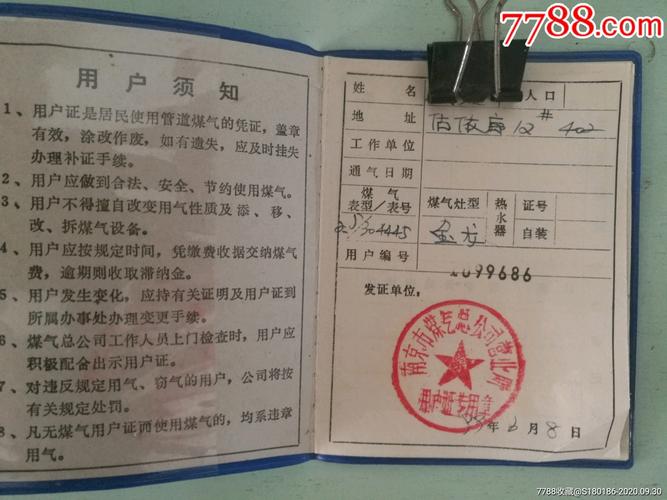 7788.com
用户须知
1、用户证是居民使用管道煤气的凭证，盖章
有效，涂改作废，如有遗失，应及时挂失
办理补证手续。
2、用户应做到合法、安全、节约使用煤气。
3、用户不得擅自改变用气性质及添、移、
改、拆煤气设备。
4、用户应按规定时间，凭缴费收据交纳煤气
费，逾期则收取滞纳金。
5、用户发生变化，应持有关证明及用户证到
所属办事处办理变更手续。
6、煤气总公司工作人员上门检查时，用户应
积极配合出示用户证。
7、对违反规定用气、窃气的用户，公司将按
有关规定处罚。
8、凡无煤气用户证而使用煤气的，均系违章
用气。
姓名 人口
地址 12# 402
工作单位
通气日期
煤气表型/表号 煤气灶型 热水器 证号
304445 自装
用户编号 099686
发证单位：
南京市煤气总公司营业所
用户证专用章
年6月8日
7788收藏@S180186-2020.09.30